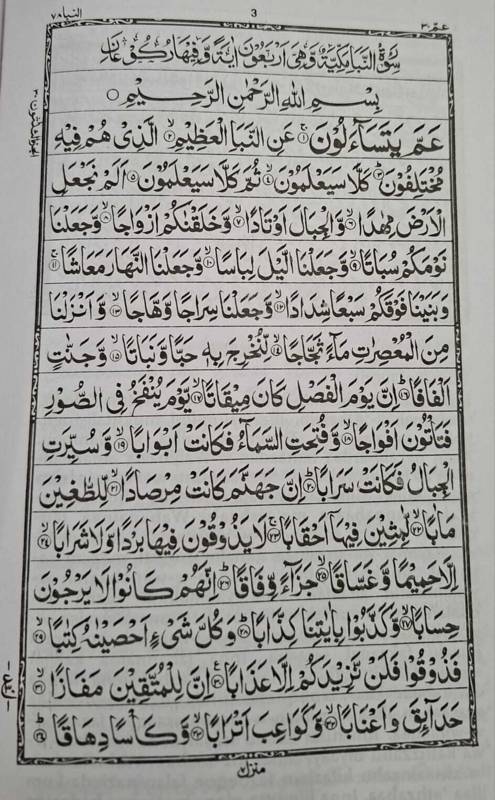 عمّ ٣٠
3
النبا ٧٨
سُوْرَةُ النَّبَاِ مَكِّيَّةٌ وَّهِىَ اَرْبَعُوْنَ اٰيَةً وَّفِيْهَا رُكُوْعَانِ
بِسْمِ اللهِ الرَّحْمٰنِ الرَّحِيْمِ ○
عَمَّ يَتَسَآءَلُوْنَ ۚ‏﴿۱﴾ عَنِ النَّبَاِ الْعَظِيْمِۙ‏﴿۲﴾ الَّذِىْ هُمْ فِيْهِ
مُخْتَلِفُوْنَؕ‏﴿۳﴾ كَلَّا سَيَعْلَمُوْنَۙ‏﴿۴﴾ ثُمَّ كَلَّا سَيَعْلَمُوْنَ‏﴿۵﴾ اَلَمْ نَجْعَلِ
الْاَرْضَ مِهٰدًاۙ‏﴿۶﴾ وَّالْجِبَالَ اَوْتَادًاۙ‏﴿۷﴾ وَّخَلَقْنٰكُمْ اَزْوَاجًاۙ‏﴿۸﴾ وَّجَعَلْنَا
نَوْمَكُمْ سُبَاتًاۙ‏﴿۹﴾ وَّجَعَلْنَا الَّيْلَ لِبَاسًاۙ‏﴿۱۰﴾ وَّجَعَلْنَا النَّهَارَ مَعَاشًا۪‏﴿۱۱﴾
وَبَنَيْنَا فَوْقَكُمْ سَبْعًا شِدَادًاۙ‏﴿۱۲﴾ وَّجَعَلْنَا سِرَاجًا وَّهَّاجًا۪ۙ‏﴿۱۳﴾ وَّاَنْزَلْنَا
مِنَ الْمُعْصِرٰتِ مَآءً ثَجَّاجًاۙ‏﴿۱۴﴾ لِّنُخْرِجَ بِهٖ حَبًّا وَّنَبَاتًاۙ‏﴿۱۵﴾ وَّجَنّٰتٍ
اَلْفَافًاؕ‏﴿۱۶﴾ اِنَّ يَوْمَ الْفَصْلِ كَانَ مِيْقَاتًاۙ‏﴿۱۷﴾ يَّوْمَ يُنْفَخُ فِى الصُّوْرِ
فَتَاْتُوْنَ اَفْوَاجًاۙ‏﴿۱۸﴾ وَّفُتِحَتِ السَّمَآءُ فَكَانَتْ اَبْوَابًاۙ‏﴿۱۹﴾ وَّسُيِّرَتِ
الْجِبَالُ فَكَانَتْ سَرَابًاؕ‏﴿۲۰﴾ اِنَّ جَهَنَّمَ كَانَتْ مِرْصَادًاۙ‏﴿۲۱﴾ لِّلطّٰغِيْنَ
مَاٰبًاۙ‏﴿۲۲﴾ لّٰبِثِيْنَ فِيْهَاۤ اَحْقَابًاۚ‏﴿۲۳﴾ لَا يَذُوْقُوْنَ فِيْهَا بَرْدًا وَّلَا شَرَابًاۙ‏﴿۲۴﴾
اِلَّا حَمِيْمًا وَّغَسَّاقًاۙ‏﴿۲۵﴾ جَزَآءً وِّفَاقًاؕ‏﴿۲۶﴾ اِنَّهُمْ كَانُوْا لَا يَرْجُوْنَ
حِسَابًاۙ‏﴿۲۷﴾ وَّكَذَّبُوْا بِاٰيٰتِنَا كِذَّابًاؕ‏﴿۲۸﴾ وَكُلَّ شَىْءٍ اَحْصَيْنٰهُ كِتٰبًاۙ‏﴿۲۹﴾
فَذُوْقُوْا فَلَنْ نَّزِيْدَكُمْ اِلَّا عَذَابًا‏﴿۳۰﴾ اِنَّ لِلْمُتَّقِيْنَ مَفَازًاۙ‏﴿۳۱﴾
حَدَآئِقَ وَاَعْنَابًاۙ‏﴿۳۲﴾ وَّكَوَاعِبَ اَتْرَابًاۙ‏﴿۳۳﴾ وَّكَاْسًا دِهَاقًاؕ‏﴿۳۴﴾
منزل